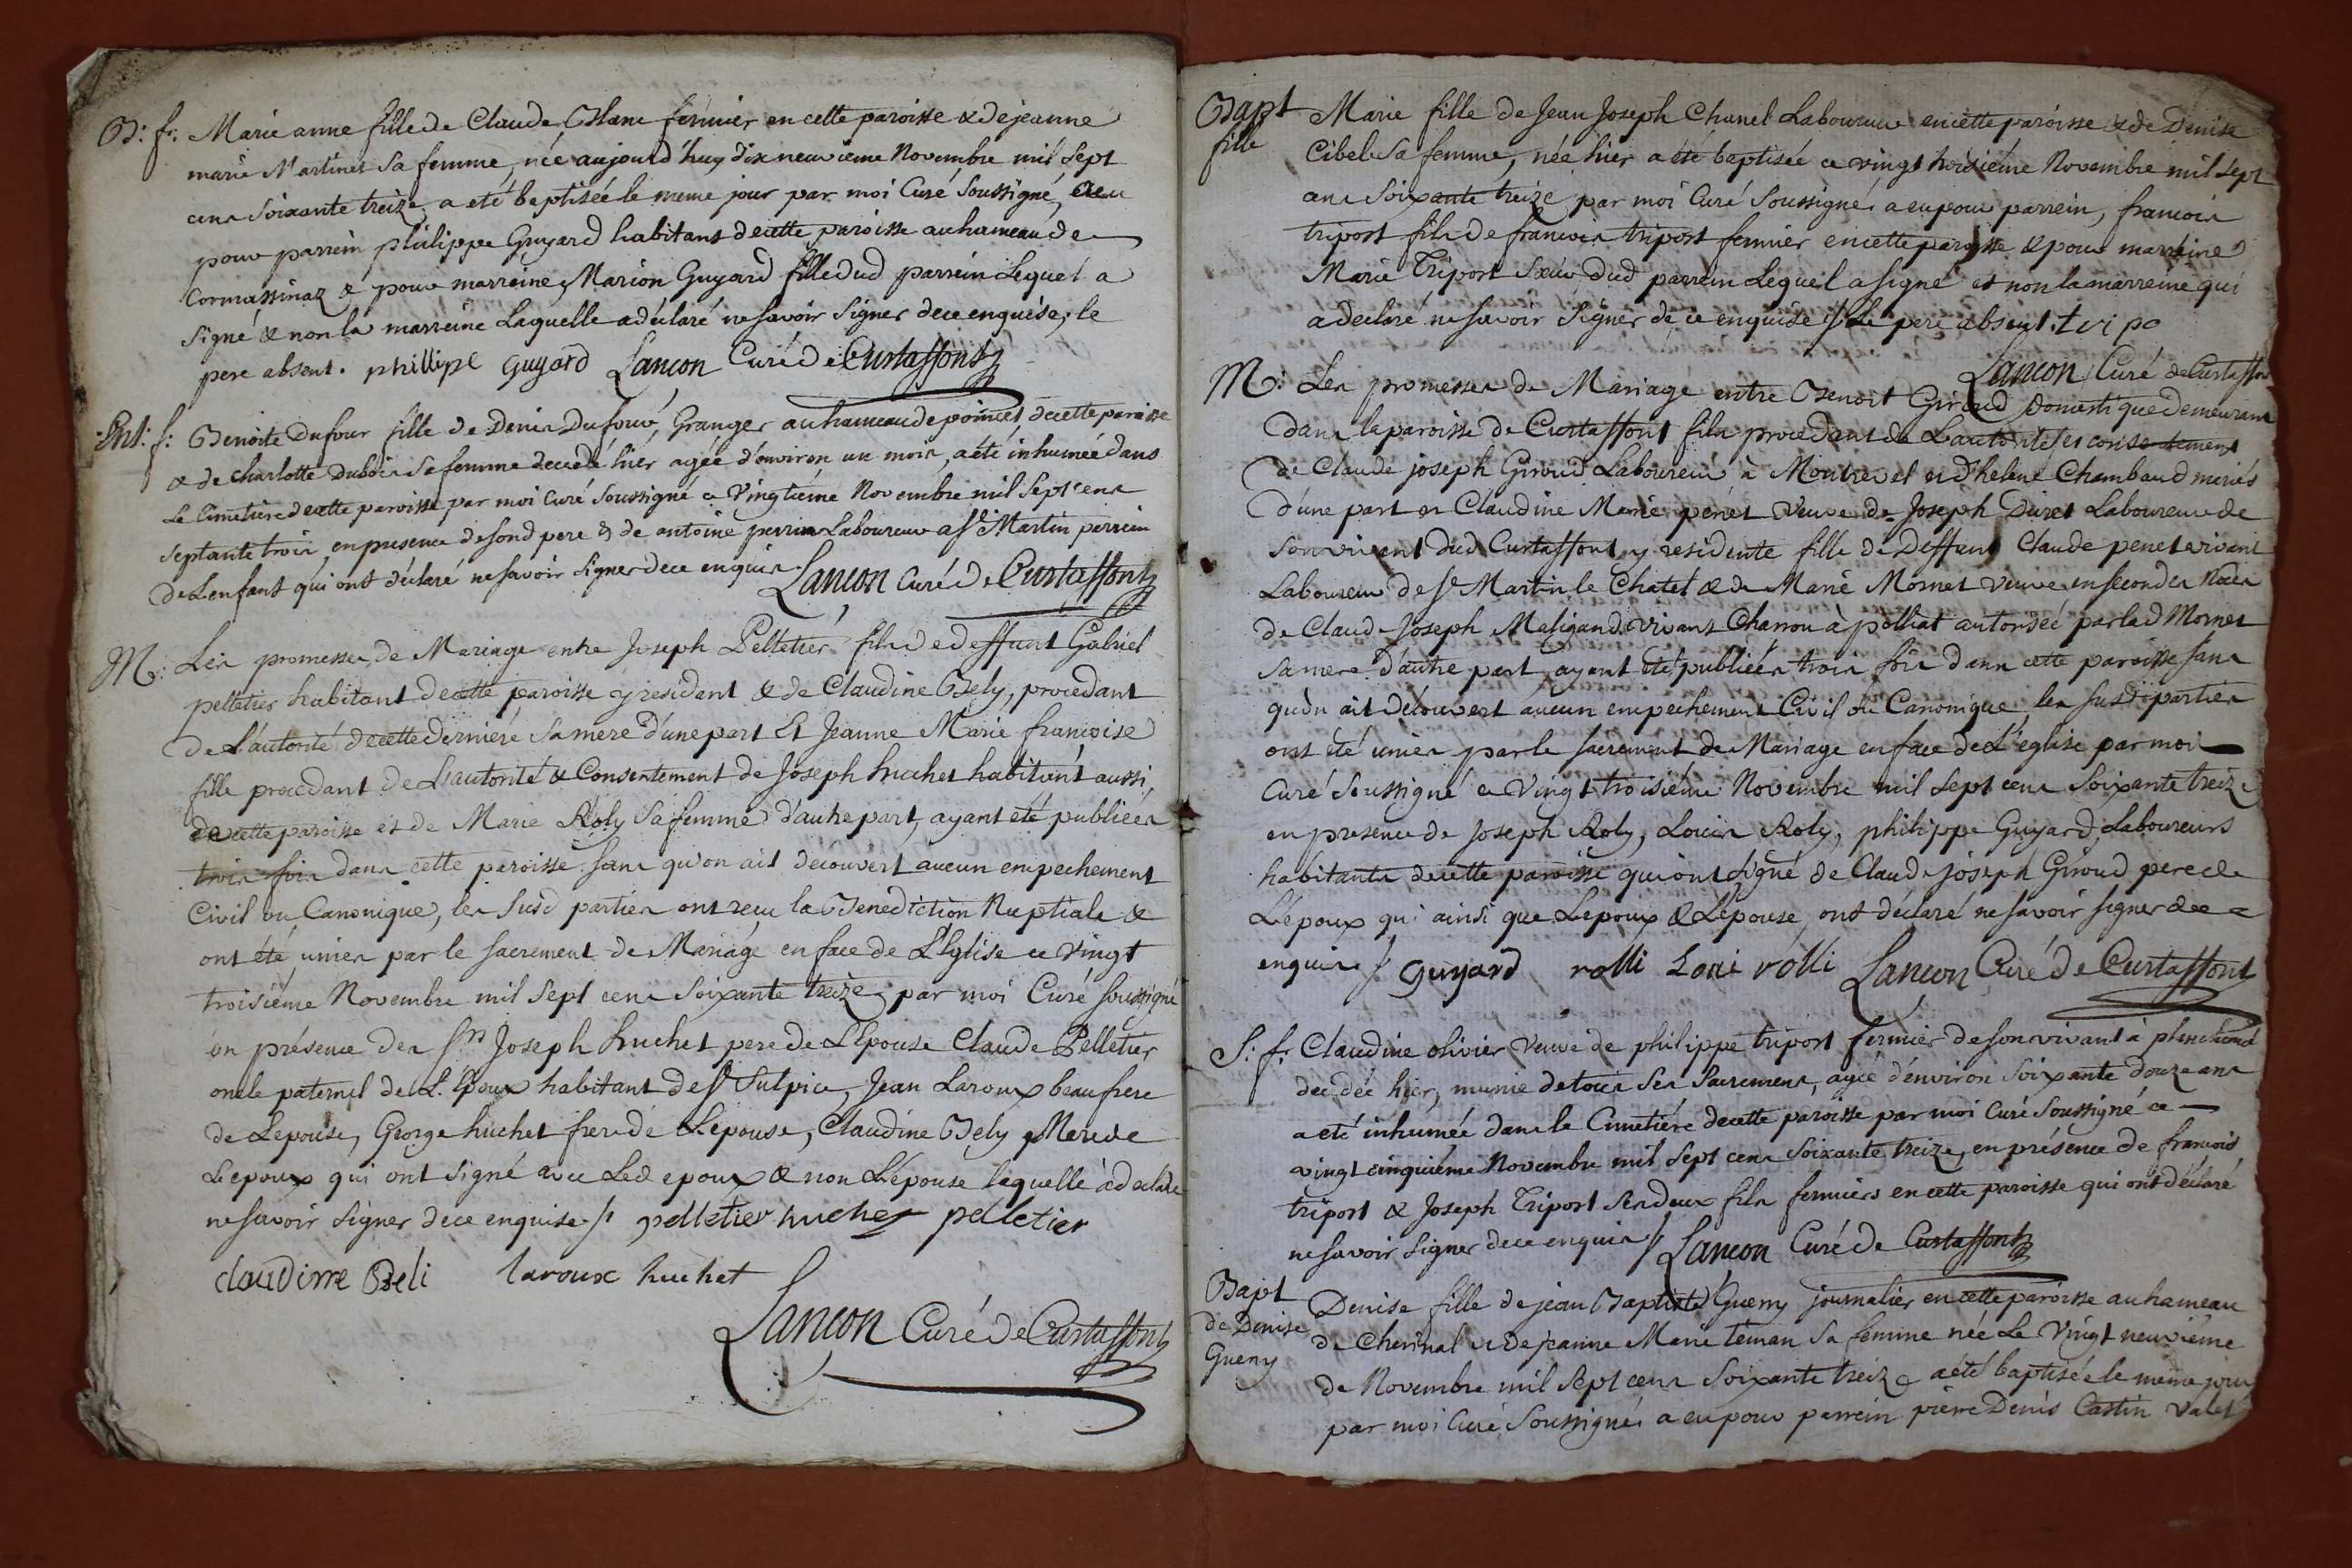 B: f: Marie anne fille de Claude Blanc fermier en cette paroisse & de jeanne
marie Martinet Sa femme, née aujourd'huy dix neuvieme Novembre mil Sept
cens Soixante treize, a eté baptisée le meme jour par moi Curé Soussigné, a eu
pour parrein philippe Guyard habitant de cette paroisse au hameau de
Cormassinaz & pour marreine Marion Guyard fille dud parrein Lequel a
Signé & non la marreine Laquelle a déclaré ne Savoir Signer de ce enquise, le
pere absent. phillipe guyard Lancon Curé de Curtaffont
Ent: f: Benoite Dufour fille de Denis Dufour, Granger au hameau de poinnet de cette paroisse
& de charlotte Dubois Sa femme decedé hier agée d'environ un mois, a été inhumée dans
Le Cimetière de cette paroisse par moi Curé Soussigné ce Vingtième Novembre mil Sept cens
Septante trois, en presence de Sond pere & de antoine perrin Laboureur a St Martin parrein
de L'enfant qui ont déclaré ne Savoir Signer de ce enquis. Lancon Curé de Curtaffont
M: Les promesses de Mariage entre Joseph Pelletier fils de deffunt Gabriel
pelletier habitant de cette paroisse y resident & de Claudine Bely, procedant
de L'autorité de cette derniere Sa mere d'une part Et Jeanne Marie francoise
fille procedant de L'autorité & Consentement de Joseph huchet habitant aussi,
de cette paroisse et de Marie Roly Sa femme d'autre part, ayant été publiées
trois fois dans cette paroisse Sans qu'on ait decouvert aucun empechement
Civil ou Canonique, les Susd parties ont reçu la Benediction Nuptiale &
ont été unies par le Sacrement de Mariage en face de L'Eglise ce vingt
troisiéme Novembre mil Sept cens Soixante treize, par moi Curé Soussigné
en présence des Srs Joseph huchet pere de L'Epouse Claude Pelletier
oncle paternel de L'Epoux habitant de St Sulpice, Jean Laroux beau frere
de Lepouse, George huchet frere de Lepouse, Claudine Bely Mere de
Lepoux qui ont Signé avec Led epoux & non L'épouse laquelle à declaré
ne Savoir Signer de ce enquise ./. pelletier huchet pelletier
claudinne Beli laroux huchet
Lancon Curé de Curtaffont
Bapt Marie fille de Jean Joseph Chanel Laboureur en cette paroisse & de Denise
fille Cibel Sa femme, née hier a été baptisée ce vingt troisiéme Novembre mil Sept
cens Soixante treize par moi Curé Soussigné, a eu pour parrein, francois
triport fils de francois triport fermier en cette paroisse & pour marreine
Marie Triport Sœur dud parrein Lequel a signé et non la marreine qui
a déclaré ne Savoir Signer de ce enquise ./. Le pere absent. tri po
Lancon Curé de Curtaffon
M: Les promesses de Mariage entre Benoit Giroud domestique demeurant
dans la paroisse de Curtaffont fils procedant de L'autorité & consentement
de Claude joseph Giroud Laboureur à Montrevel et d'helene Chambaud mariés
d'une part et Claudine Marie penet Veuve de Joseph Duret Laboureur de
Son vivant dud Curtaffont y residente fille de Deffunt Claude penet vivant
Laboureur de St Martin le Chatel & de Marie Mornet veuve en Secondes Noces
de Claude Joseph Maligand vivant Charron à polliat autorisée par lad Mornet
Sa mere d'autre part, ayant été publiées trois fois dans cette paroisse Sans
qu'on ait découvert aucun empechement Civil ou Canonique, les Susd parties
ont été unies par le Sacrement de Mariage en face de L'eglise par moi
Curé Soussigné ce Vingt troisiéme Novembre mil Sept cens Soixante treize
en presence de Joseph Roly, Louis Roly, philippe Guyard Laboureurs
habitants de cette paroisse qui ont Signé de Claude joseph Giroud pere de
L'époux qui ainsi que Lepoux & L'épouse ont déclaré ne Savoir Signer de ce
enquis ./. guyard rolli Loui rolli Lancon Curé de Curtaffont
S: f: Claudine olivier Veuve de philippe triport fermier de Son vivant à
decedée hier, munie de tous Ses Sacremens, agée d'environ Soixante douze ans
a eté inhumée dans le Cimetiére de cette paroisse par moi Curé Soussigné ce
vingt cinquiéme Novembre mil Sept cens Soixante treize, en présence de francois
triport & Joseph Triport Ses deux fils fermiers en cette paroisse qui ont déclaré
ne Savoir Signer de ce enquis ./. Lancon Curé de Curtaffont
Bapt Denise fille de jean Baptiste Gueny journalier en cette paroisse au hameau
de Denise de Cherinal & de jeanne Marie Teman Sa femme née Le Vingt neuviéme
Gueny de Novembre mil Sept cens Soixante treize a été baptisée le même jour
par moi Curé Soussigné, a eu pour parrein pierre Denis Castin Valet